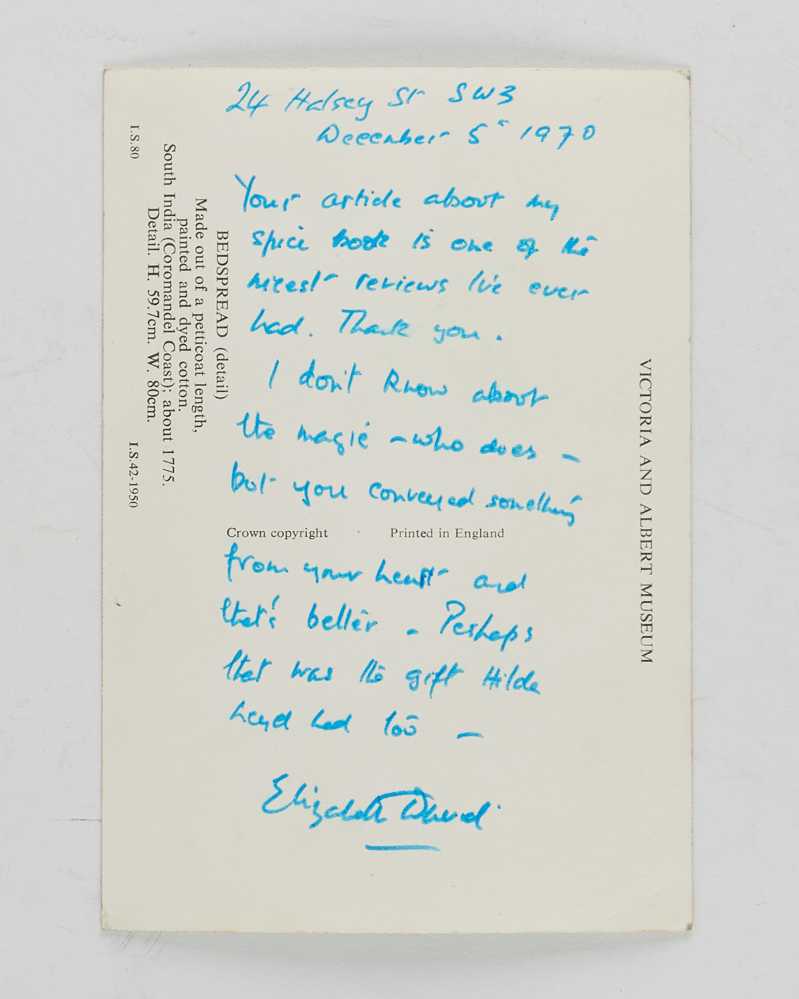 24 Halsey St SW3
December 5th 1970
Your article about my
spice book is one of the
nicest reviews I've ever
had. Thank you.
I don't know about
the magic – who does –
but you conveyed something
from your heart and
that's better. Perhaps
that was the gift Hilda
Leyel had too –
Elizabeth David
Crown copyright
Printed in England
VICTORIA AND ALBERT MUSEUM
BEDSPREAD (detail)
Made out of a petticoat length,
painted and dyed cotton.
South India (Coromandel Coast); about 1775.
Detail. H. 59.7cm. W. 80cm.
I.S.80
I.S.42-1950